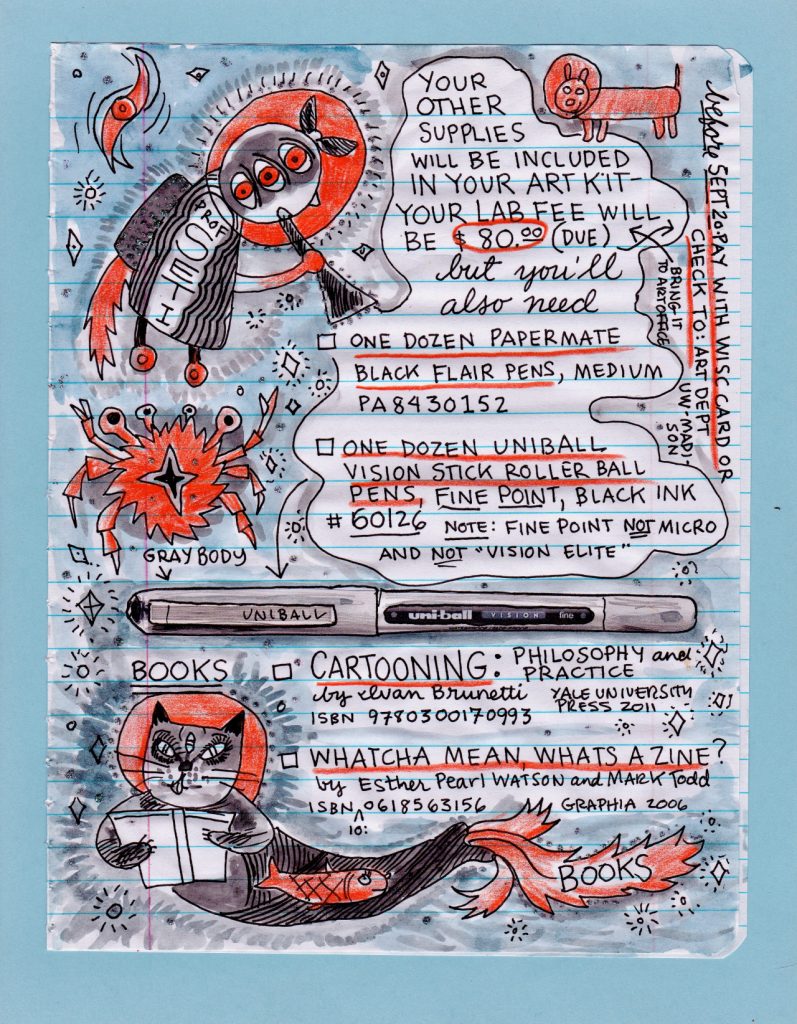 YOUR
OTHER
SUPPLIES
WILL BE INCLUDED
IN YOUR ART KIT—
YOUR LAB FEE WILL
BE $80.00 (DUE)
before SEPT 20. PAY WITH WISC CARD OR
CHECK TO: ART DEPT
UW-MADI-
SON
BRING IT
TO ART OFFICE
PROF
SETI
but you'll
also need
ONE DOZEN PAPERMATE
BLACK FLAIR PENS, MEDIUM
PA8430152
ONE DOZEN UNIBALL
VISION STICK ROLLER BALL
PENS, FINE POINT, BLACK INK
# 60126 NOTE: FINE POINT NOT MICRO
AND NOT "VISION ELITE"
GRAY BODY
UNIBALL
uni-ball VISION fine
BOOKS
CARTOONING: PHILOSOPHY and
PRACTICE
by Ivan Brunetti YALE UNIVERSITY
PRESS 2011
ISBN 9780300170993
WHATCHA MEAN, WHATS A ZINE?
by Esther Pearl WATSON and MARK Todd
ISBN 0618563156 GRAPHIA 2006
10:
BOOKS